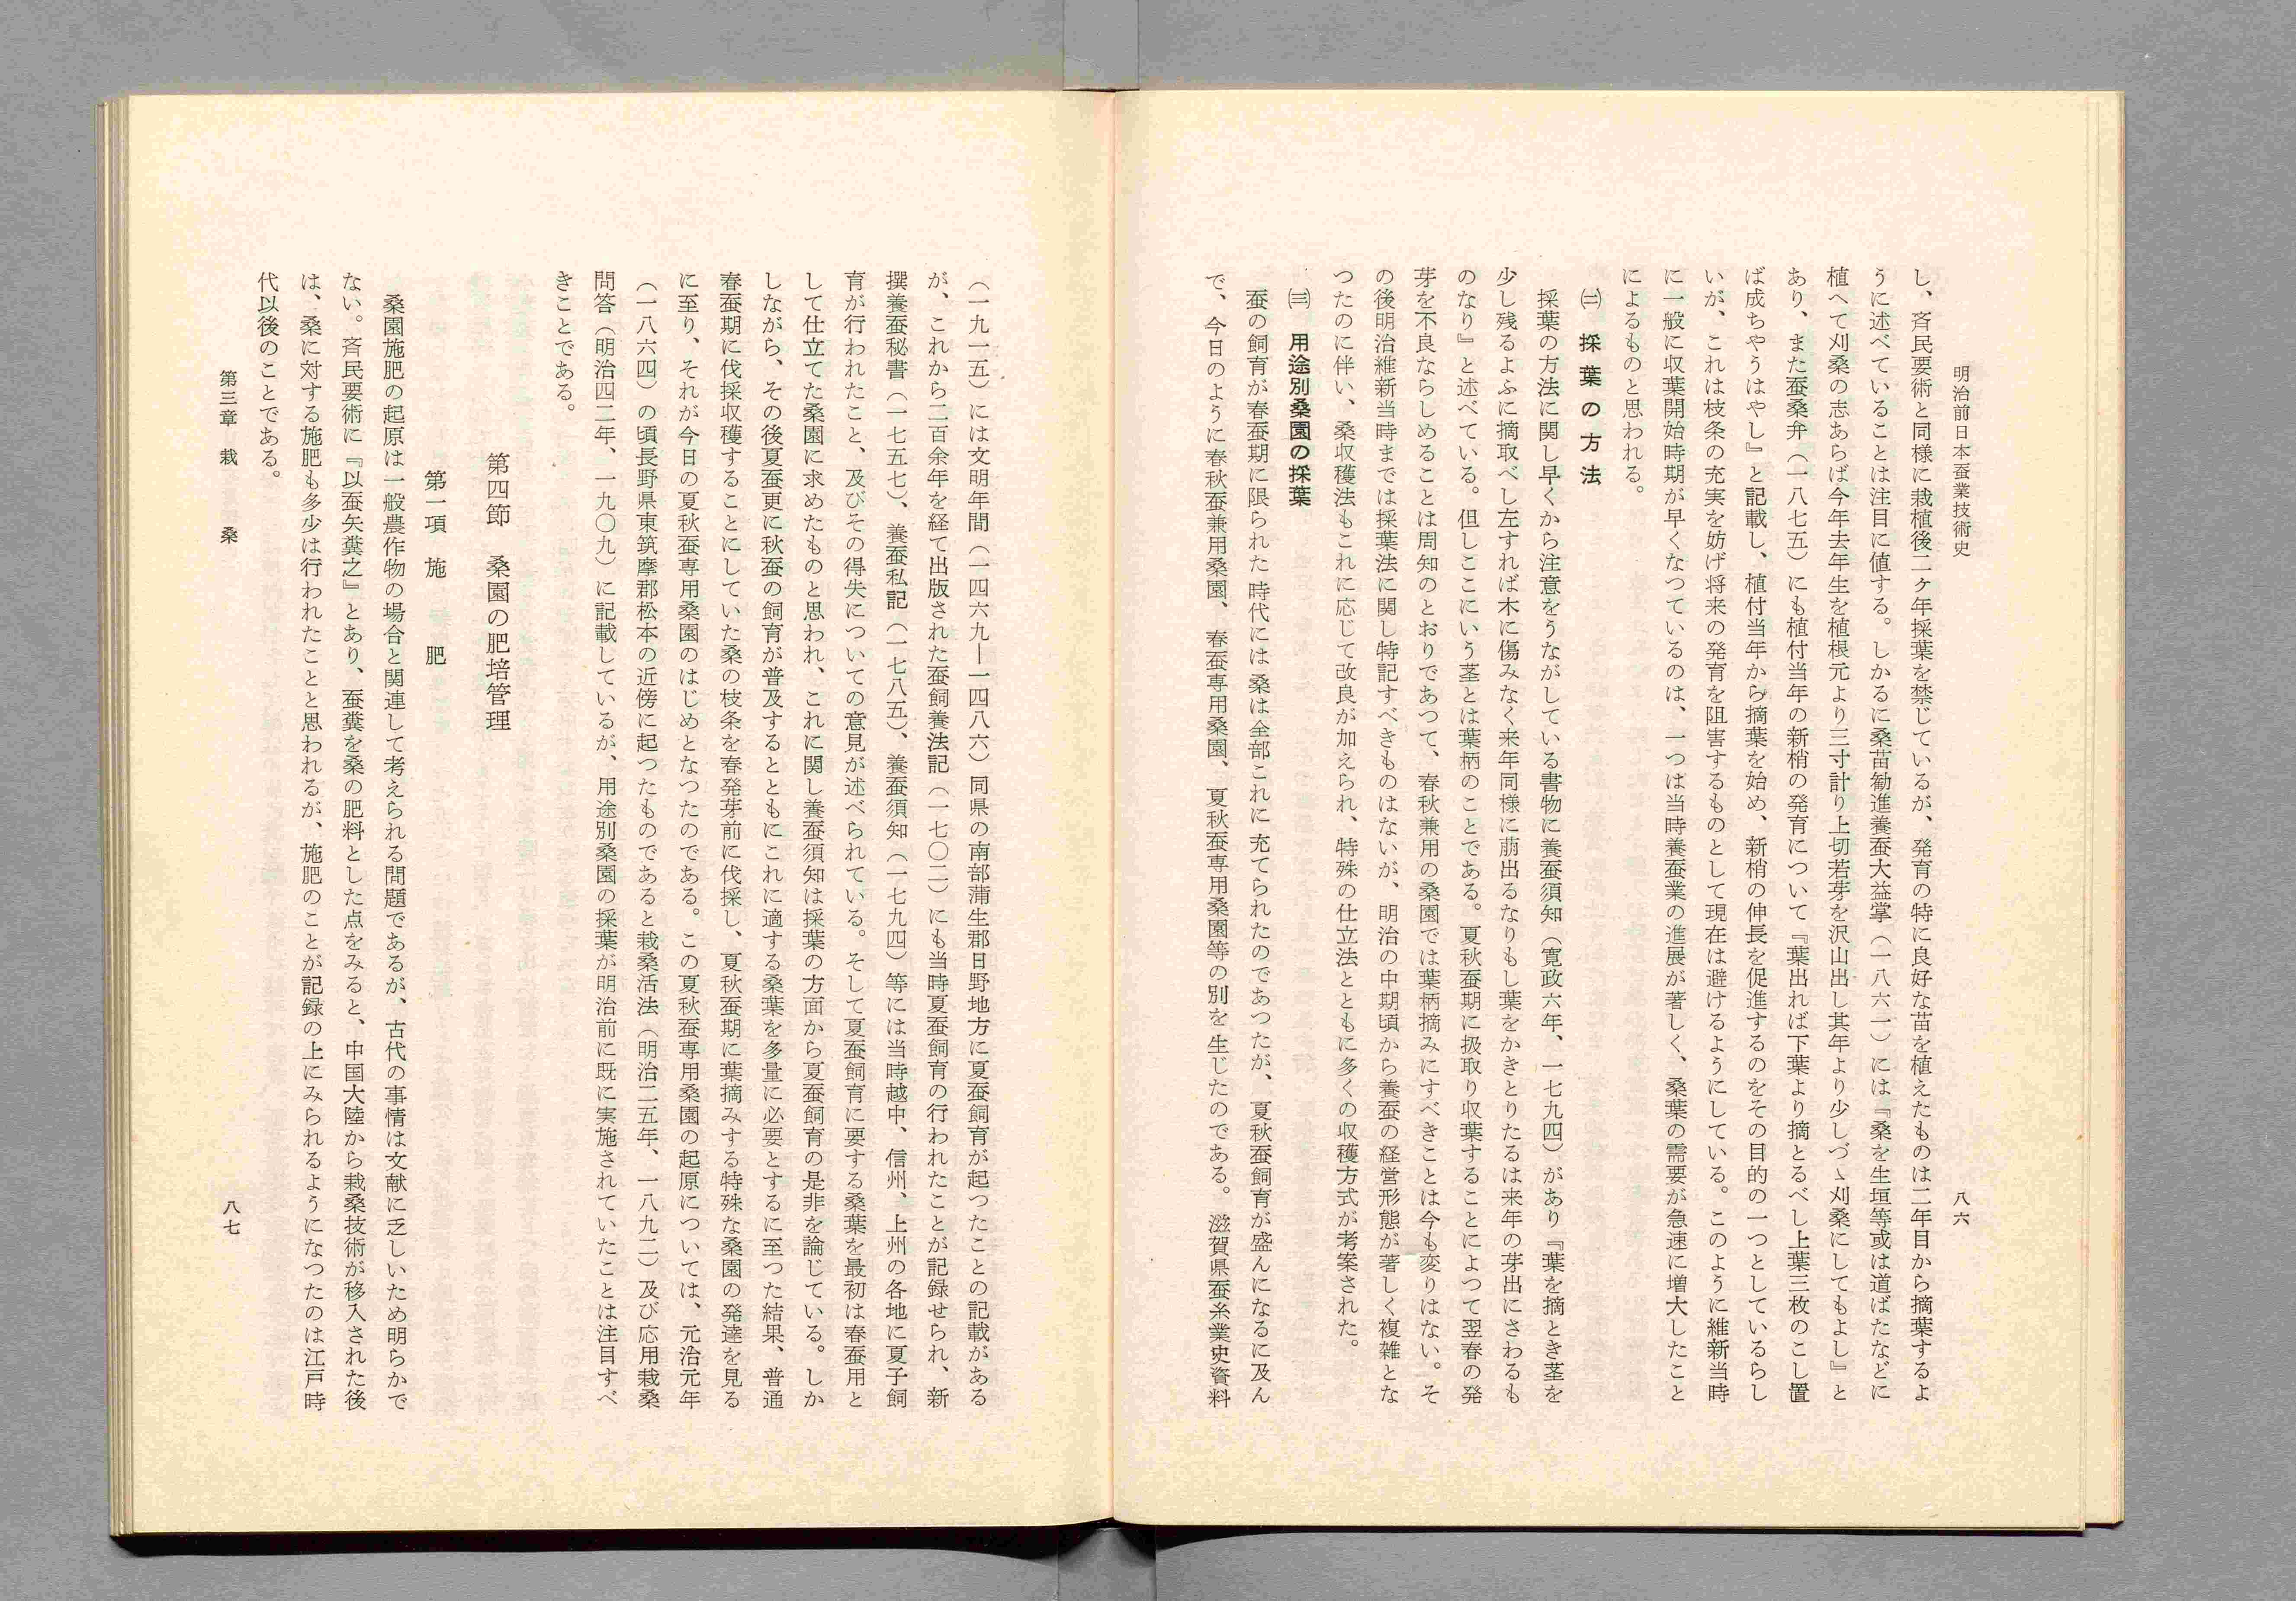 明治前日本蚕業技術史
八六
し、斉民要術と同様に栽植後二ヶ年採葉を禁じているが、発育の特に良好な苗を植えたものは二年目から摘葉するよ
うに述べていることは注目に値する。しかるに桑苗勧進養蚕大益掌（一八六一）には『桑を生垣等或は道ばたなどに
植へて刈桑の志あらば今年去年生を植根元より三寸計り上切若芽を沢山出し其年より少しづゝ刈桑にしてもよし』と
あり、また蚕桑弁（一八七五）にも植付当年の新梢の発育について『葉出れば下葉より摘とるべし上葉三枚のこし置
ば成ちやうはやし』と記載し、植付当年から摘葉を始め、新梢の伸長を促進するのをその目的の一つとしているらし
いが、これは枝条の充実を妨げ将来の発育を阻害するものとして現在は避けるようにしている。このように維新当時
に一般に収葉開始時期が早くなつているのは、一つは当時養蚕業の進展が著しく、桑葉の需要が急速に増大したこと
によるものと思われる。
㈡　採葉の方法
採葉の方法に関し早くから注意をうながしている書物に養蚕須知（寛政六年、一七九四）があり『葉を摘とき茎を
少し残るよふに摘取べし左すれば木に傷みなく来年同様に萠出るなりもし葉をかきとりたるは来年の芽出にさわるも
のなり』と述べている。但しここにいう茎とは葉柄のことである。夏秋蚕期に扱取り収葉することによつて翌春の発
芽を不良ならしめることは周知のとおりであつて、春秋兼用の桑園では葉柄摘みにすべきことは今も変りはない。そ
の後明治維新当時までは採葉法に関し特記すべきものはないが、明治の中期頃から養蚕の経営形態が著しく複雑とな
つたのに伴い、桑収穫法もこれに応じて改良が加えられ、特殊の仕立法とともに多くの収穫方式が考案された。
㈢　用途別桑園の採葉
蚕の飼育が春蚕期に限られた時代には桑は全部これに充てられたのであつたが、夏秋蚕飼育が盛んになるに及ん
で、今日のように春秋蚕兼用桑園、春蚕専用桑園、夏秋蚕専用桑園等の別を生じたのである。滋賀県蚕糸業史資料
（一九一五）には文明年間（一四六九―一四八六）同県の南部蒲生郡日野地方に夏蚕飼育が起つたことの記載がある
が、これから二百余年を経て出版された蚕飼養法記（一七〇二）にも当時夏蚕飼育の行われたことが記録せられ、新
撰養蚕秘書（一七五七）、養蚕私記（一七八五）、養蚕須知（一七九四）等には当時越中、信州、上州の各地に夏子飼
育が行われたこと、及びその得失についての意見が述べられている。そして夏蚕飼育に要する桑葉を最初は春蚕用と
して仕立てた桑園に求めたものと思われ、これに関し養蚕須知は採葉の方面から夏蚕飼育の是非を論じている。しか
しながら、その後夏蚕更に秋蚕の飼育が普及するとともにこれに適する桑葉を多量に必要とするに至つた結果、普通
春蚕期に伐採収穫することにしていた桑の枝条を春発芽前に伐採し、夏秋蚕期に葉摘みする特殊な桑園の発達を見る
に至り、それが今日の夏秋蚕専用桑園のはじめとなつたのである。この夏秋蚕専用桑園の起原については、元治元年
（一八六四）の頃長野県東筑摩郡松本の近傍に起つたものであると栽桑活法（明治二五年、一八九二）及び応用栽桑
問答（明治四二年、一九〇九）に記載しているが、用途別桑園の採葉が明治前に既に実施されていたことは注目すべ
きことである。
第四節　桑園の肥培管理
第一項　施肥
桑園施肥の起原は一般農作物の場合と関連して考えられる問題であるが、古代の事情は文献に乏しいため明らかで
ない。斉民要術に『以蚕矢糞之』とあり、蚕糞を桑の肥料とした点をみると、中国大陸から栽桑技術が移入された後
は、桑に対する施肥も多少は行われたことと思われるが、施肥のことが記録の上にみられるようになつたのは江戸時
代以後のことである。
第三章　栽桑
八七